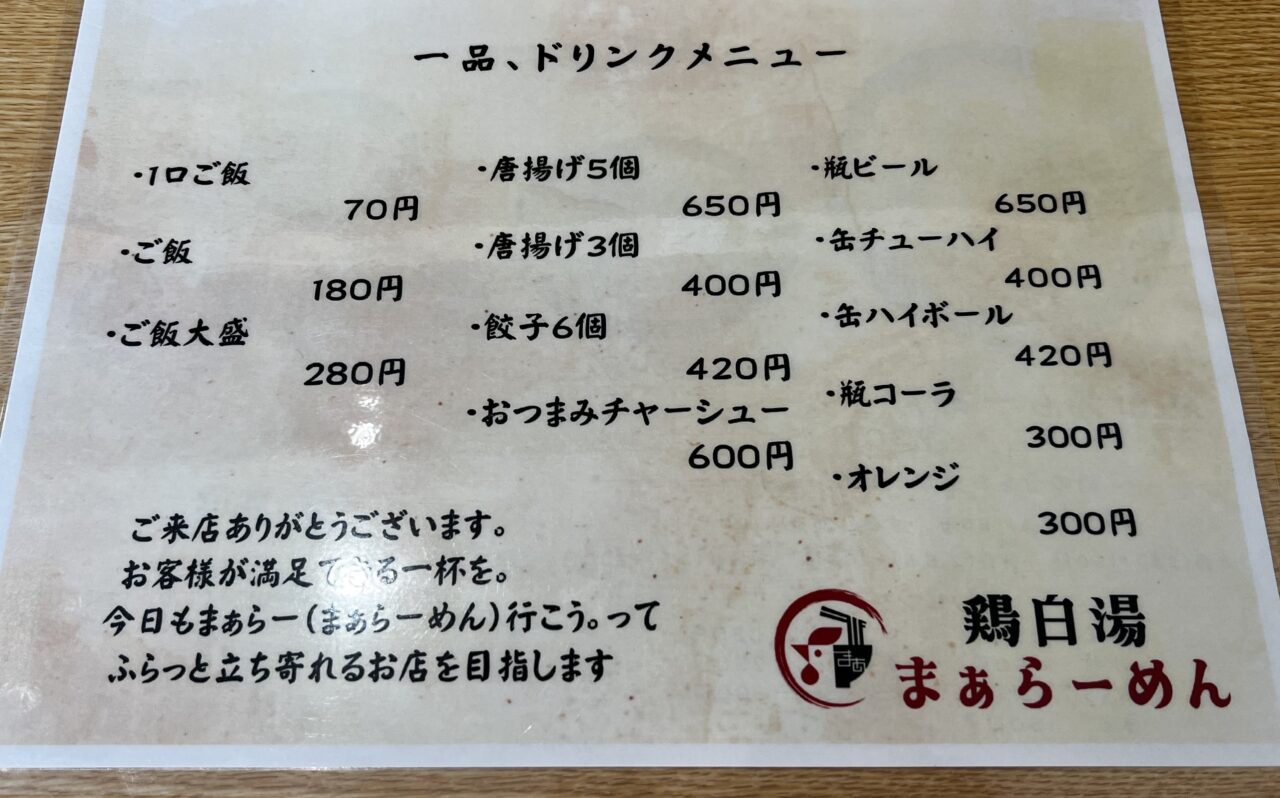 一品、ドリンクメニュー
・1口ご飯
70円
・ご飯
180円
・ご飯大盛
280円
・唐揚げ5個
650円
・唐揚げ3個
400円
・餃子6個
420円
・おつまみチャーシュー
600円
・瓶ビール
650円
・缶チューハイ
400円
・缶ハイボール
420円
・瓶コーラ
300円
・オレンジ
300円
ご来店ありがとうございます。
お客様が満足できる一杯を。
今日もまぁらー(まぁらーめん)行こう。って
ふらっと立ち寄れるお店を目指します
まぁ
鶏白湯
まぁらーめん